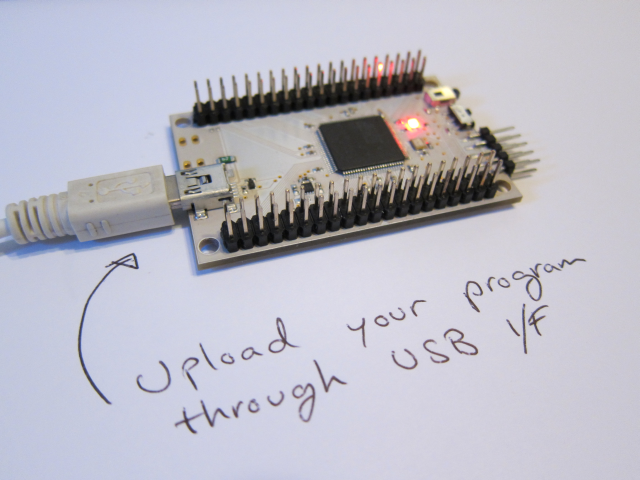 Upload your program
through USB I/F